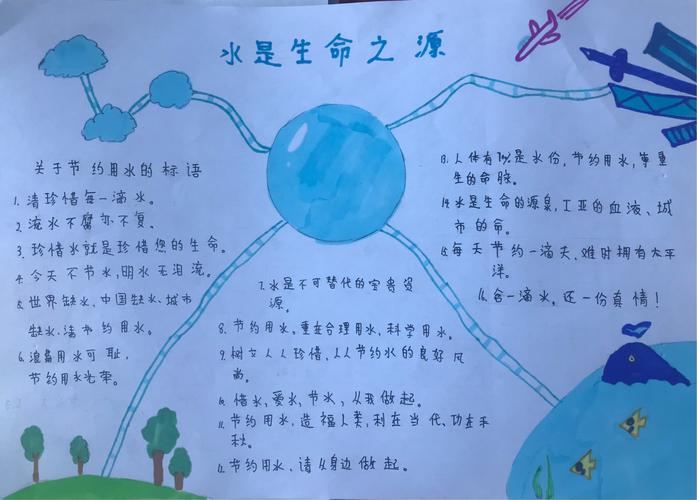 水是生命之源
关于节约用水的标语
1. 请珍惜每一滴水。
2. 流水不腐亦不复。
3. 珍惜水就是珍惜您的生命。
4. 今天不节水,明水无泪流。
5. 世界缺水、中国缺水、城市
缺水、请节约用水。
6. 浪费用水可耻,
节约用水光荣。
7. 水是不可替代的宝贵资
源。
8. 节约用水,重在合理用水,科学用水。
9. 树立人人珍惜,人人节约水的良好风
尚。
10. 惜水,爱水,节水,从我做起。
11. 节约用水,造福人类,利在当代、功在千
秋。
12. 节约用水、请从身边做起。
13. 人体有是水份,节约用水,掌量
生的命脉。
14. 水是生命的源泉,工业的血液、城
市的命。
15. 每天节约一滴天、难时拥有太平
洋。
16. 舍一滴水,还一份真情!